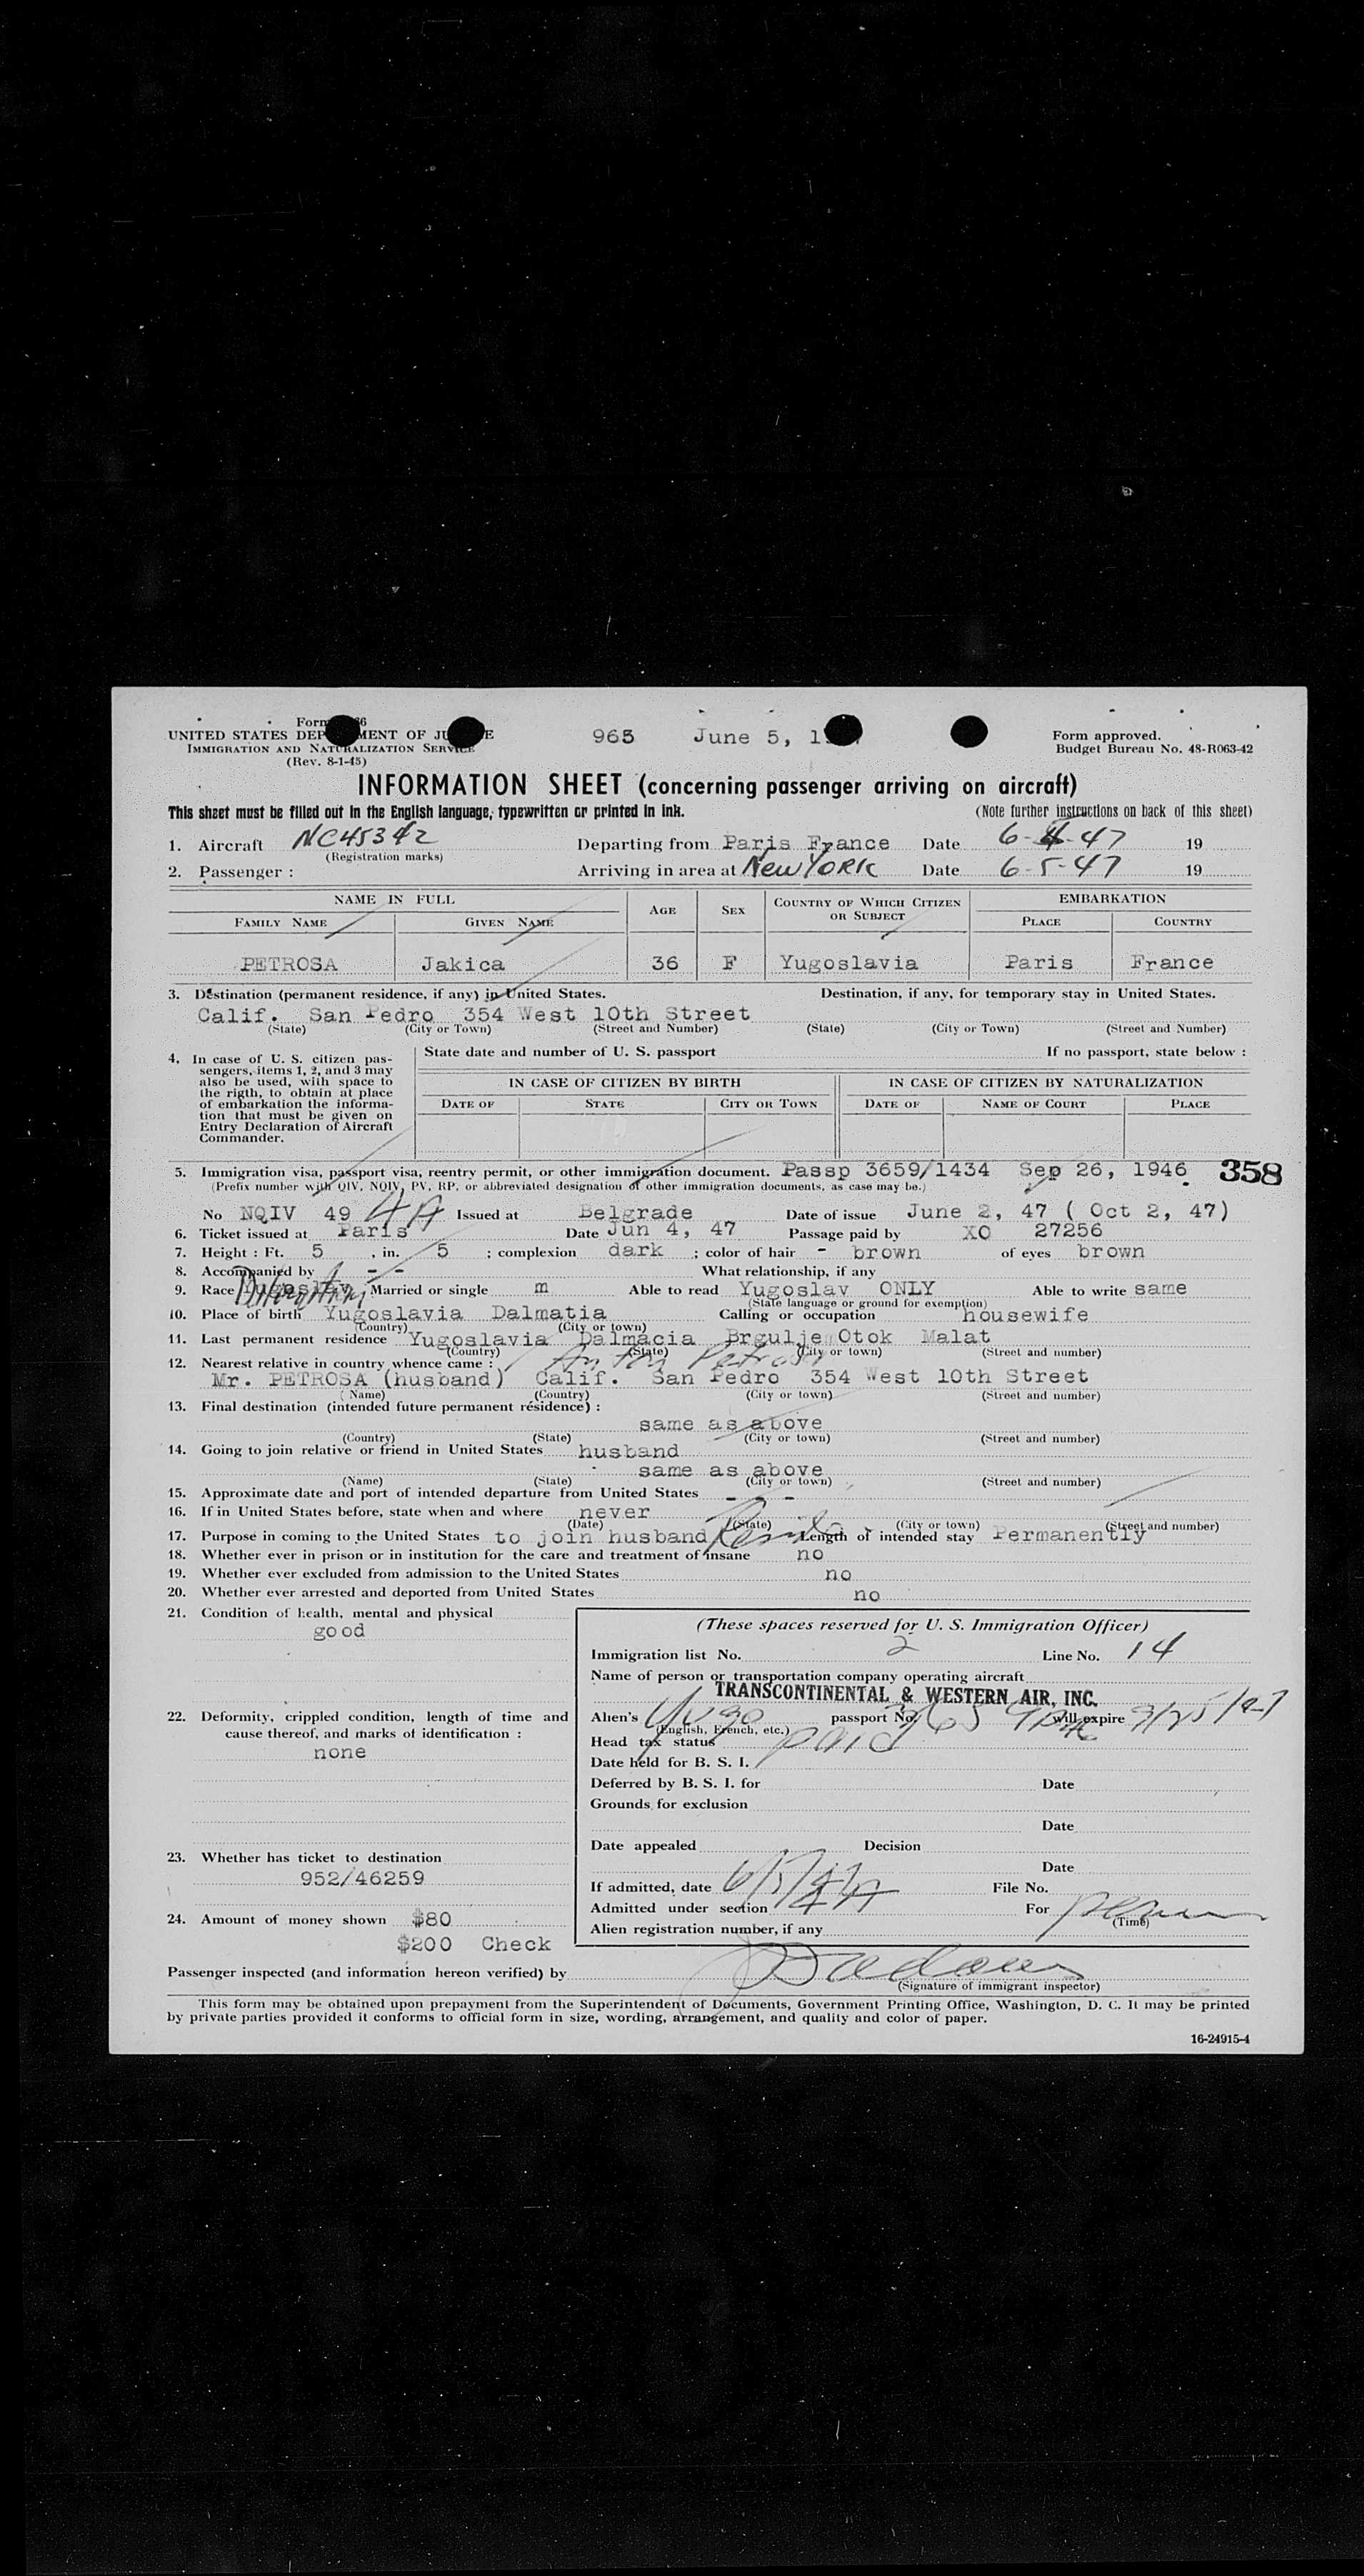 Form
UNITED STATES DEPARTMENT OF JUSTICE
IMMIGRATION AND NATURALIZATION SERVICE
(Rev. 8-1-45)
965 June 5,
Form approved.
Budget Bureau No. 48-R063-42
INFORMATION SHEET (concerning passenger arriving on aircraft)
This sheet must be filled out in the English language, typewritten or printed in ink. (Note further instructions on back of this sheet)
1. Aircraft NC45342 Departing from Paris France Date 6-4-47 19
(Registration marks)
2. Passenger : Arriving in area at New YORK Date 6-5-47 19
NAME IN FULL AGE SEX COUNTRY OF WHICH CITIZEN OR SUBJECT EMBARKATION
FAMILY NAME GIVEN NAME PLACE COUNTRY
PETROSA Jakica 36 F Yugoslavia Paris France
3. Destination (permanent residence, if any) in United States. Destination, if any, for temporary stay in United States.
Calif. San Pedro 354 West 10th Street
(State) (City or Town) (Street and Number) (State) (City or Town) (Street and Number)
4. In case of U. S. citizen pas-
sengers, items 1, 2, and 3 may
also be used, with space to
the rigth, to obtain at place
of embarkation the informa-
tion that must be given on
Entry Declaration of Aircraft
Commander.
State date and number of U. S. passport If no passport, state below :
IN CASE OF CITIZEN BY BIRTH IN CASE OF CITIZEN BY NATURALIZATION
DATE OF STATE CITY OR TOWN DATE OF NAME OF COURT PLACE
5. Immigration visa, passport visa, reentry permit, or other immigration document. Passp 3659/1434 Sep 26, 1946 358
(Prefix number with QIV, NQIV, PV, RP, or abbreviated designation of other immigration documents, as case may be.)
No NQIV 49 4A Issued at Belgrade Date of issue June 2, 47 ( Oct 2, 47)
6. Ticket issued at Paris Date Jun 4, 47 Passage paid by XO 27256
7. Height : Ft. 5 , in. 5 ; complexion dark ; color of hair - brown of eyes brown
8. Accompanied by - - What relationship, if any
9. Race Yugoslav Married or single m Able to read Yugoslav ONLY Able to write same
(State language or ground for exemption)
10. Place of birth Yugoslavia Dalmatia Calling or occupation housewife
(Country) (City or town)
11. Last permanent residence Yugoslavia Dalmacia Brgulje Otok Malat
(Country) (State) (City or town) (Street and number)
12. Nearest relative in country whence came : Anton Petrosa
Mr. PETROSA (husband) Calif. San Pedro 354 West 10th Street
(Name) (Country) (City or town) (Street and number)
13. Final destination (intended future permanent résidence) :
same as above
(Country) (State) (City or town) (Street and number)
14. Going to join relative or friend in United States husband
same as above
(Name) (State) (City or town) (Street and number)
15. Approximate date and port of intended departure from United States - - -
16. If in United States before, state when and where never
(Date) (State) (City or town) (Street and number)
17. Purpose in coming to the United States to join husband Length of intended stay Permanently
18. Whether ever in prison or in institution for the care and treatment of insane no
19. Whether ever excluded from admission to the United States no
20. Whether ever arrested and deported from United States no
21. Condition of health, mental and physical
good
22. Deformity, crippled condition, length of time and
cause thereof, and marks of identification :
none
23. Whether has ticket to destination
952/46259
24. Amount of money shown $80
$200 Check
(These spaces reserved for U. S. Immigration Officer)
Immigration list No. 2 Line No. 14
Name of person or transportation company operating aircraft
TRANSCONTINENTAL & WESTERN AIR, INC.
Alien's Yugo passport No. will expire 9/25/47
(English, French, etc.)
Head tax status paid
Date held for B. S. I.
Deferred by B. S. I. for Date
Grounds for exclusion
Date
Date appealed Decision
Date
If admitted, date 6/5/47 File No.
Admitted under section 4A For perm
(Time)
Alien registration number, if any
Passenger inspected (and information hereon verified) by
(Signature of immigrant inspector)
This form may be obtained upon prepayment from the Superintendent of Documents, Government Printing Office, Washington, D. C. It may be printed
by private parties provided it conforms to official form in size, wording, arrangement, and quality and color of paper.
16-24915-4